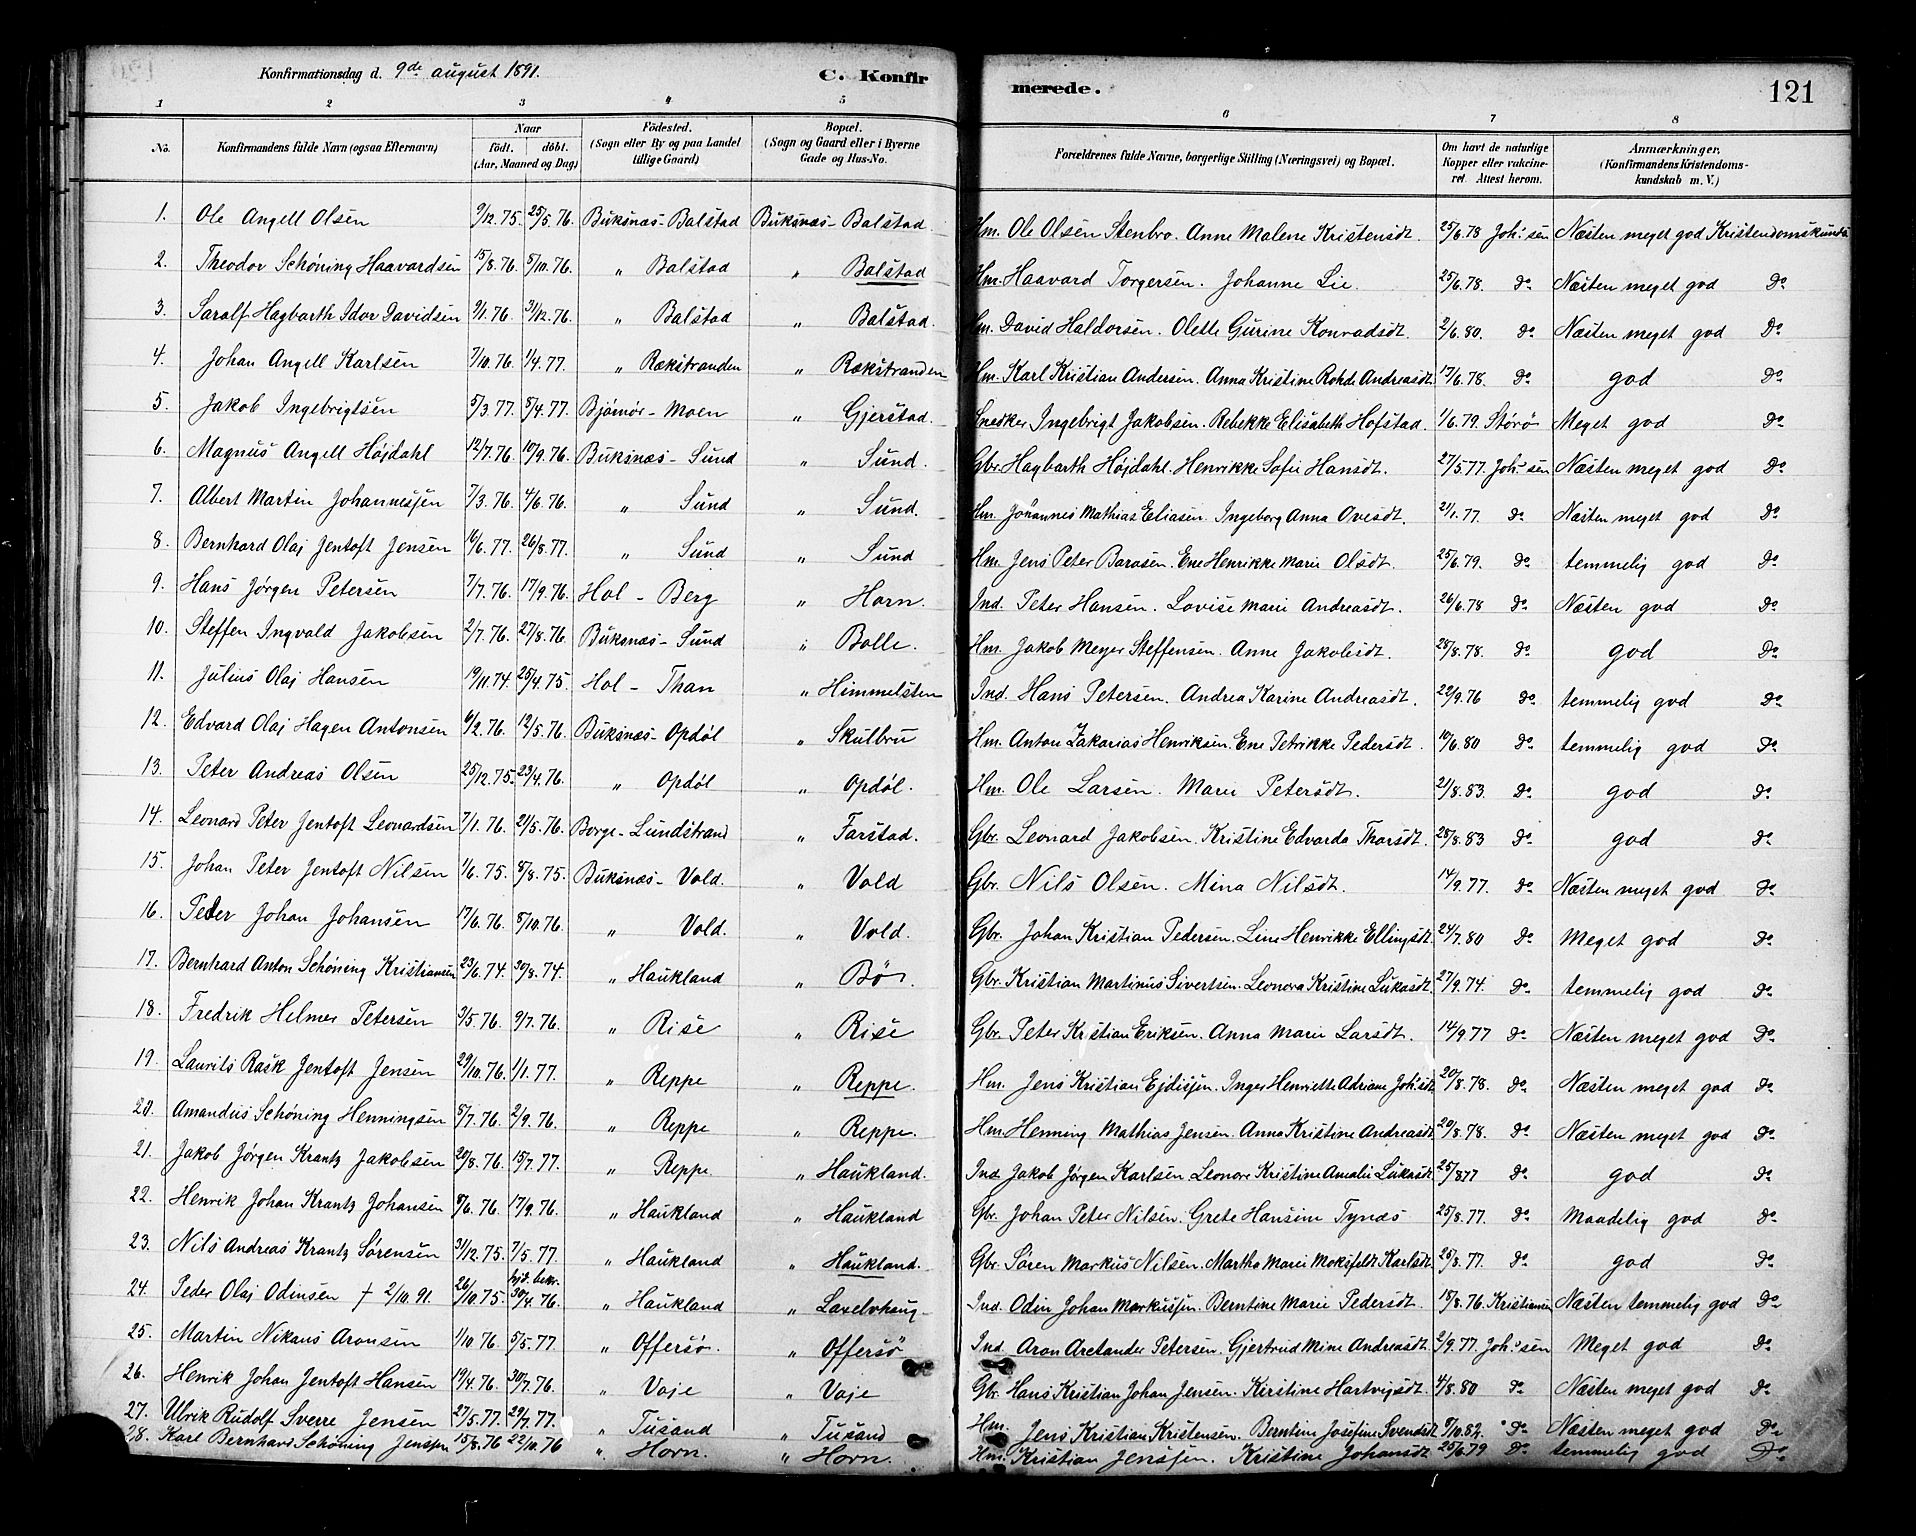 Konfirmationsdag d. 9de august 1891. C. Konfirmerede. 121
1 2 3 4 5 6 7 8
No. Konfirmandens fulde Navn (ogsaa Efternavn) Naar födt. döbt. (Aar, Maaned og Dag) Födested. (Sogn eller By og paa Landet tillige Gaard) Bopæl. (Sogn og Gaard eller i Byerne Gade og Hus-No. Forældrenes fulde Navne, borgerlige Stilling (Næringsvei) og Bopæl. Om havt de naturlige Kopper eller vakcineret. Attest herom. Anmærkninger, (Konfirmandens Kristendomskundskab m. V.)
1. Ole Angell Olsen 9/12.75. 25/5.76. Buksnæs-Balstad Buksnæs-Balstad Hm. Ole Olsen Stenbro. Anne Malene Kristensdt. 25/6.78 Joh.sen Næsten meget god Kristendomskunds
2. Theodor Schöning Haavardsen 15/8.76. 5/10.76. " Balstad " Balstad Hm. Haavard Torgersen. Johanne Lie. 25/6.78. do Næsten meget god do
3. Saralf Hagbarth Idor Davidsen 9/1.76. 31/12.76. " Balstad " Balstad. Hm. David Haldorsen. Olette Gurine Konradsdt. 2/6.80. do Næsten meget god do
4. Johan Angell Karlsen 7/10.76. 1/4.77. " Rækstranden " Rækstranden Hm. Karl Kristian Andersen. Anna Kristine Rohde Andreasdt. 13/6.78. do god do
5. Jakob Ingebrigtsen 5/3.77. 8/4.77. Bjørnör-Moen " Gjerstad. Snedker Ingebrigt Jakobsen. Rebekke Elisabeth Hofstad. 1/6.79. Störö Meget god do
6. Magnus Angell Höjdahl 12/7.76. 10/9.76. Buksnæs-Sund " Sund. Gbr. Hagbarth Höjdahl. Henrikke Sofie Hansdt. 27/5.77. Joh.sen Næsten meget god do
7. Albert Martin Johannessen 7/3.76. 4/6.76. " Sund " Sund. Hm. Johannes Mathias Eliasen. Ingeborg Anna Ovesdt. 21/1.77. do Næsten meget god do
8. Bernhard Olaj Jentoft Jensen 16/6.77. 26/8.77. " Sund " Sund Hm. Jens Peter Barosen. Ene Henrikke Marie Olsdt. 25/6.79. do temmelig god do
9. Hans Jörgen Petersen 7/7.76. 17/9.76. Hol-Berg " Horn. Ind. Peter Hansen. Lovise Marie Andreasdt. 26/6.78 do Næsten god do
10. Steffen Ingvald Jakobsen 2/7.76. 27/8.76. Buksnæs-Sund " Bolle. Hm. Jakob Meyer Steffensen. Anne Jakobsdt. 28/8.78. do god do
11. Julius Olaj Hansen 19/11.74. 25/4.75. Hol-Than " Himmelsten Ind. Hans Petersen. Andrea Karine Andreasdt. 22/9.76 do temmelig god do
12. Edvard Olaj Hagen Antonsen 6/2.76. 12/5.76. Buksnæs-Opdöl " Skulbru Hm. Anton Zakarias Henriksen. Ene Petrikke Pedersdt. 10/6.80 do temmelig god do
13. Peter Andreas Olsen 25/12.75. 23/4.76. " Opdöl " Opdöl. Hm. Ole Larsen. Marie Petersdt. 21/8.83. do god do
14. Leonard Peter Jentoft Leonardsen 7/1.76. 21/5.76. Borge-Lundstrand " Farstad. Gbr. Leonard Jakobsen. Kristine Edvarda Thorsdt. 28/8.83 do god do
15. Johan Peter Jentoft Nilsen 1/6.75. 8/8.75. Buksnæs-Vold. " Vold Gbr. Nils Olsen. Mina Nilsdt. 14/9.77. do Næsten meget god do
16. Peder Johan Johansen 17/6.76. 8/10.76. " Vold. " Vold. Gbr. Johan Kristian Pedersen. Line Henrikke Ellingsdt. 24/7.80 do Meget god do
17. Bernhard Anton Schöning Kristiansen 23/6.74. 30/8.74. " Haukland " Bö. Gbr. Kristian Martinus Sivertsen. Leonora Kristine Lukasdt. 27/9.74. do temmelig god do
18. Fredrik Helmer Petersen 3/5.76. 9/7.76. " Rise " Rise Gbr. Peter Kristian Eriksen. Anna Marie Larsdt. 14/9.77 do Næsten meget god do
19. Laurits Rask Jentoft Jensen 29/10.76. 1/1.77. " Reppe " Reppe. Hm. Jens Kristian Ejdissen. Inger Henriette Adriane Joh.sdt 20/8.78. do Næsten meget god do
20. Amandus Schöning Henningsen 8/7.76. 2/9.76. " Reppe " Reppe. Hm. Henning Mathias Jensen. Anna Kristine Andreasdt. 20/8.78. do Næsten meget god do
21. Jakob Jörgen Krantz Jakobsen 20/8.76. 15/7.77. " Reppe " Haukland. Ind. Jakob Jörgen Karlsen. Leonore Kristine Amalie Lukasdt. 25/8.77 do god do
22. Henrik Johan Krantz Johansen 8/6.76. 17/9.76. " Haukland " Haukland Gbr. Johan Peter Nilsen. Grete Hansine Tynæs 25/8.77. do Maadelig god do
23. Nils Andreas Krantz Sörensen 31/12.75. 7/5.77. " Haukland " Haukland. Gbr. Sören Markus Nilsen. Martha Marie Moksfeldt Karlsdt. 25/8.77. do god do
24. Peder Olaj Odinsen † 2/10.91. 26/10.75. hjd. bekr. 30/4.76. " Haukland " Laxelvhaug Ind. Odin Johan Markussen. Berntine Marie Pedersdt. 18/8.76. Kristiansen Næsten temmelig god do
25. Martin Nikans Aronsen 1/10.76. 5/5.77. " Offersö. " Offersö Ind. Aron Aretander Petersen. Gjertrud Mine Andreasdt. 2/9.77. Joh.sen Meget god do
26. Henrik Johan Jentoft Hansen 19/4.76. 30/7.76. " Voje " Voje Gbr. Hans Kristian Johan Jensen. Kirstine Hartvigsdt. 4/8.80 do Næsten meget god do
27. Ulrik Rudolf Sverre Jensen 27/5.77. 29/7.77. " Tusand " Tusand Hm. Jens Kristian Kristensen. Berntine Josefine Svendsdt. 9/10.82. do Næsten meget god do
28. Karl Bernhard Schöning Jenssen 15/8.76 22/10.76 " Horn. " Horn. Hm. Kristian Jenssen. Kristine Johansdt. 25/6.79 do temmelig god do